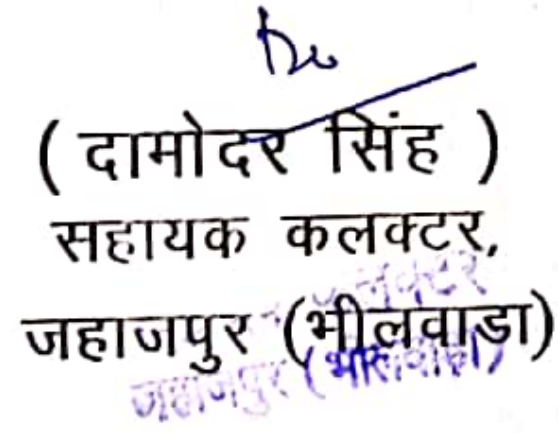 ( दामोदर सिंह )
सहायक कलक्टर,
जहाजपुर (भीलवाडा)
जहाजपुर (भीलवाडा)